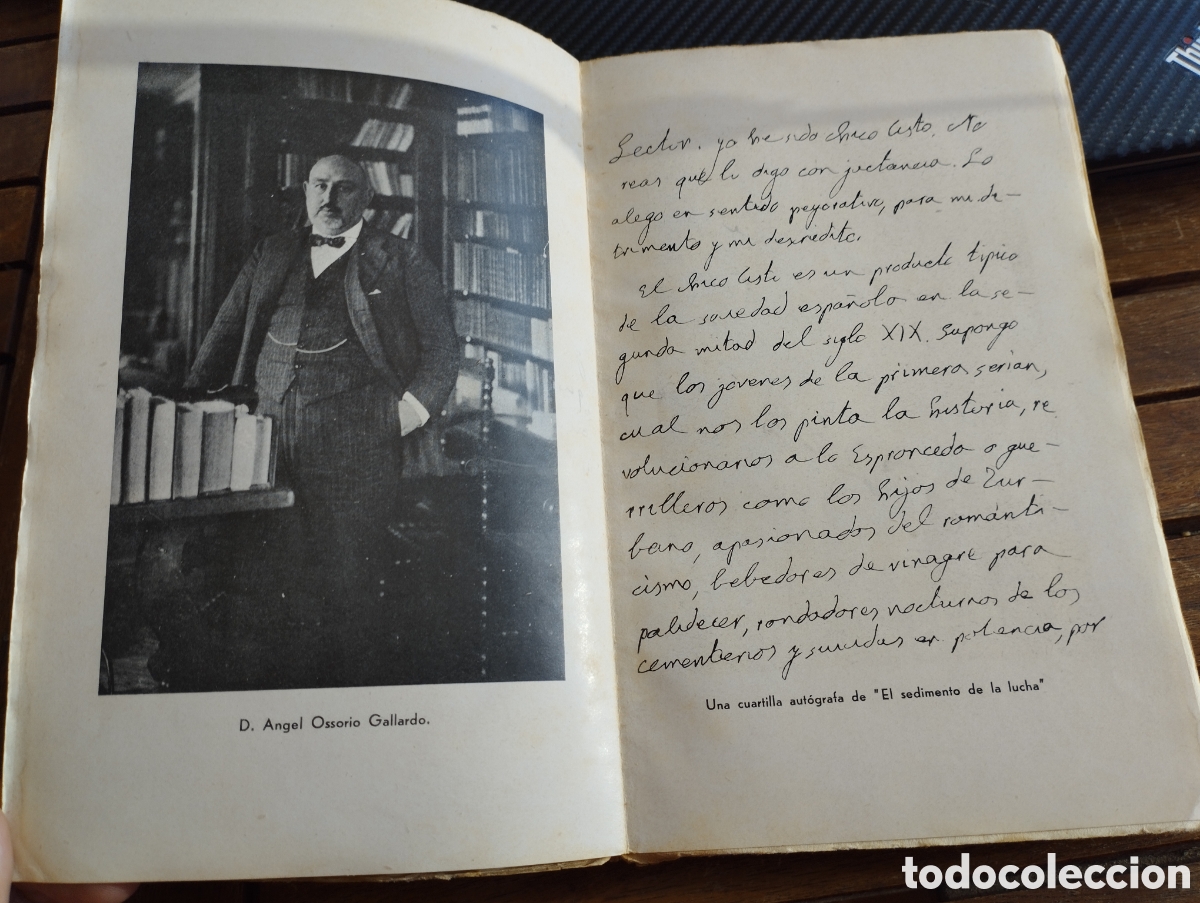 D. Angel Ossorio Gallardo.
Lector, yo he sido chico listo. No
creas que lo digo con jactancia. Lo
alego en sentido peyorativo, para mi de-
trimento y mi descrédito.
El chico listo es un producto típico
de la sociedad española en la se-
gunda mitad del siglo XIX. Supongo
que los jovenes de la primera serían,
cual nos los pinta la historia, re
volucionarios a lo Espronceda o gue-
rrilleros como los hijos de Zur-
bano, apasionados del románti-
cismo, bebedores de vinagre para
palidecer, rondadores nocturnos de los
cementerios y suicidas en potencia, por
Una cuartilla autógrafa de "El sedimento de la lucha"
Thi
todocoleccion